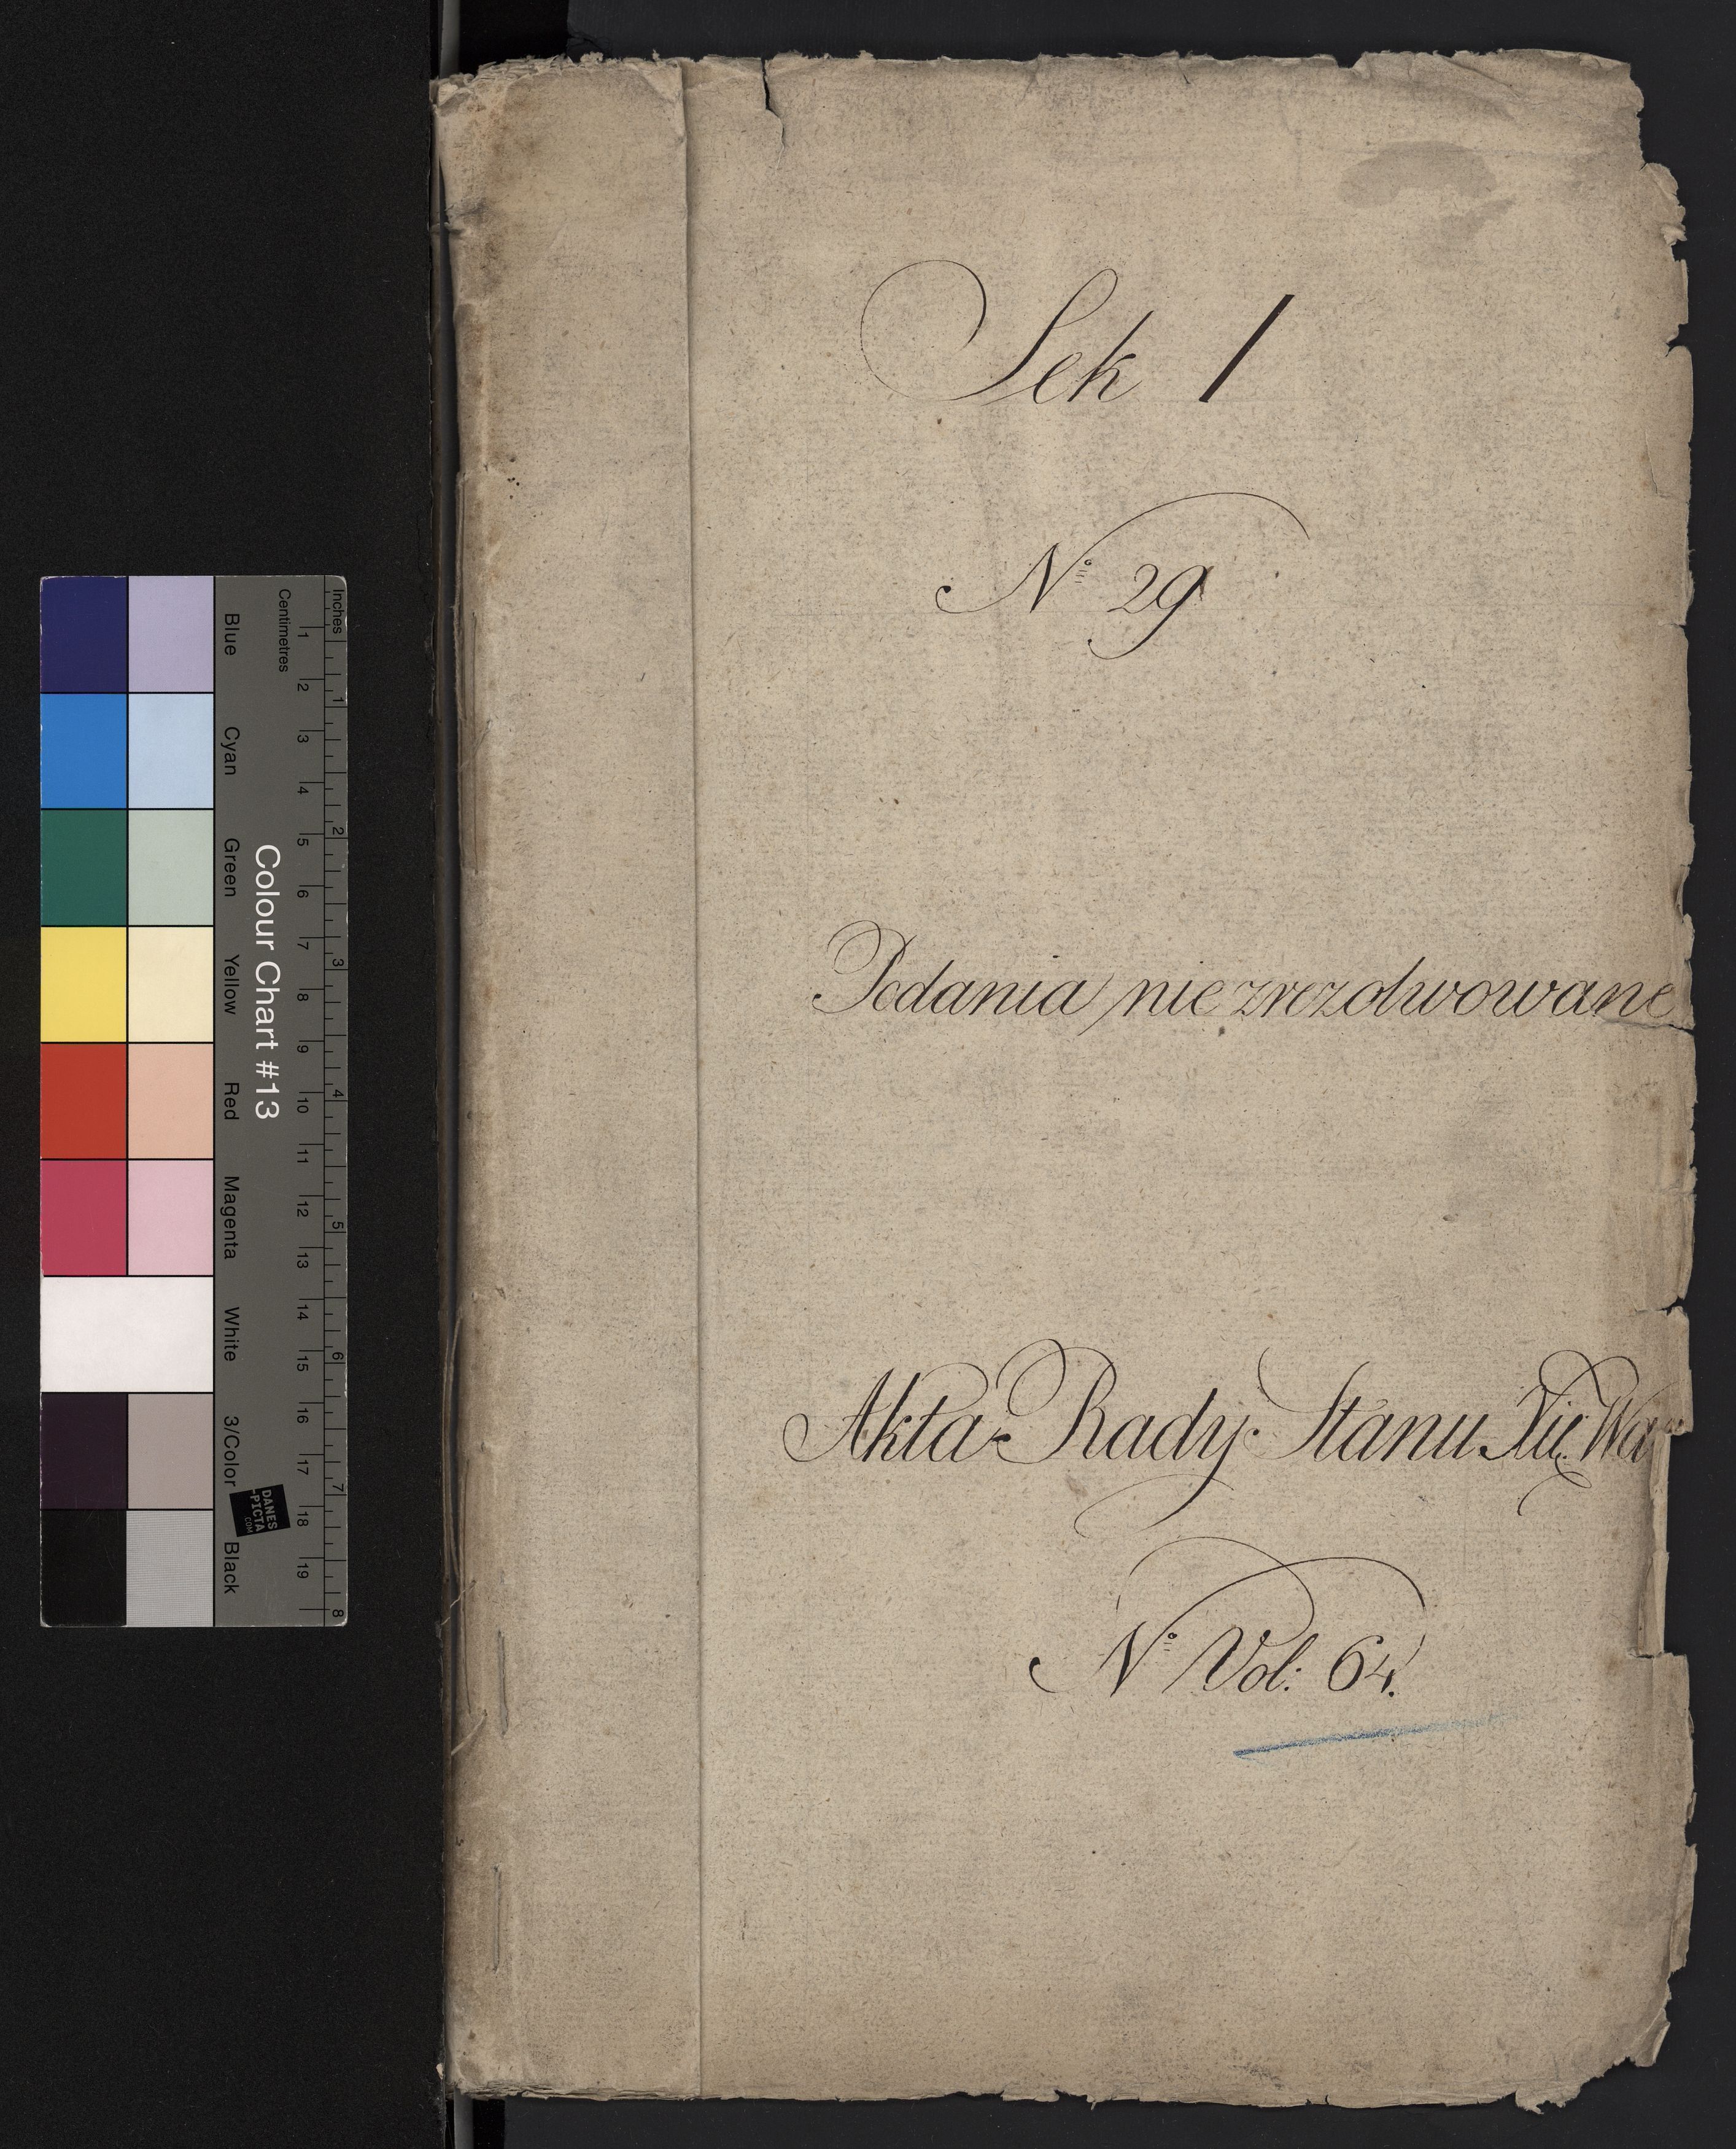 Sek 1
No 29
Podania nie zrezolwowane
Akta Rady Stanu Xię. War
No Vol: 64.
Inches
Centimetres
1 2 3 4 5 6 7 8 9 10 11 12 13 14 15 16 17 18 19
1 2 3 4 5 6 7 8
Colour Chart #13
Blue Cyan Green Yellow Red Magenta White 3/Color Black
DANES
-PICTA
.COM